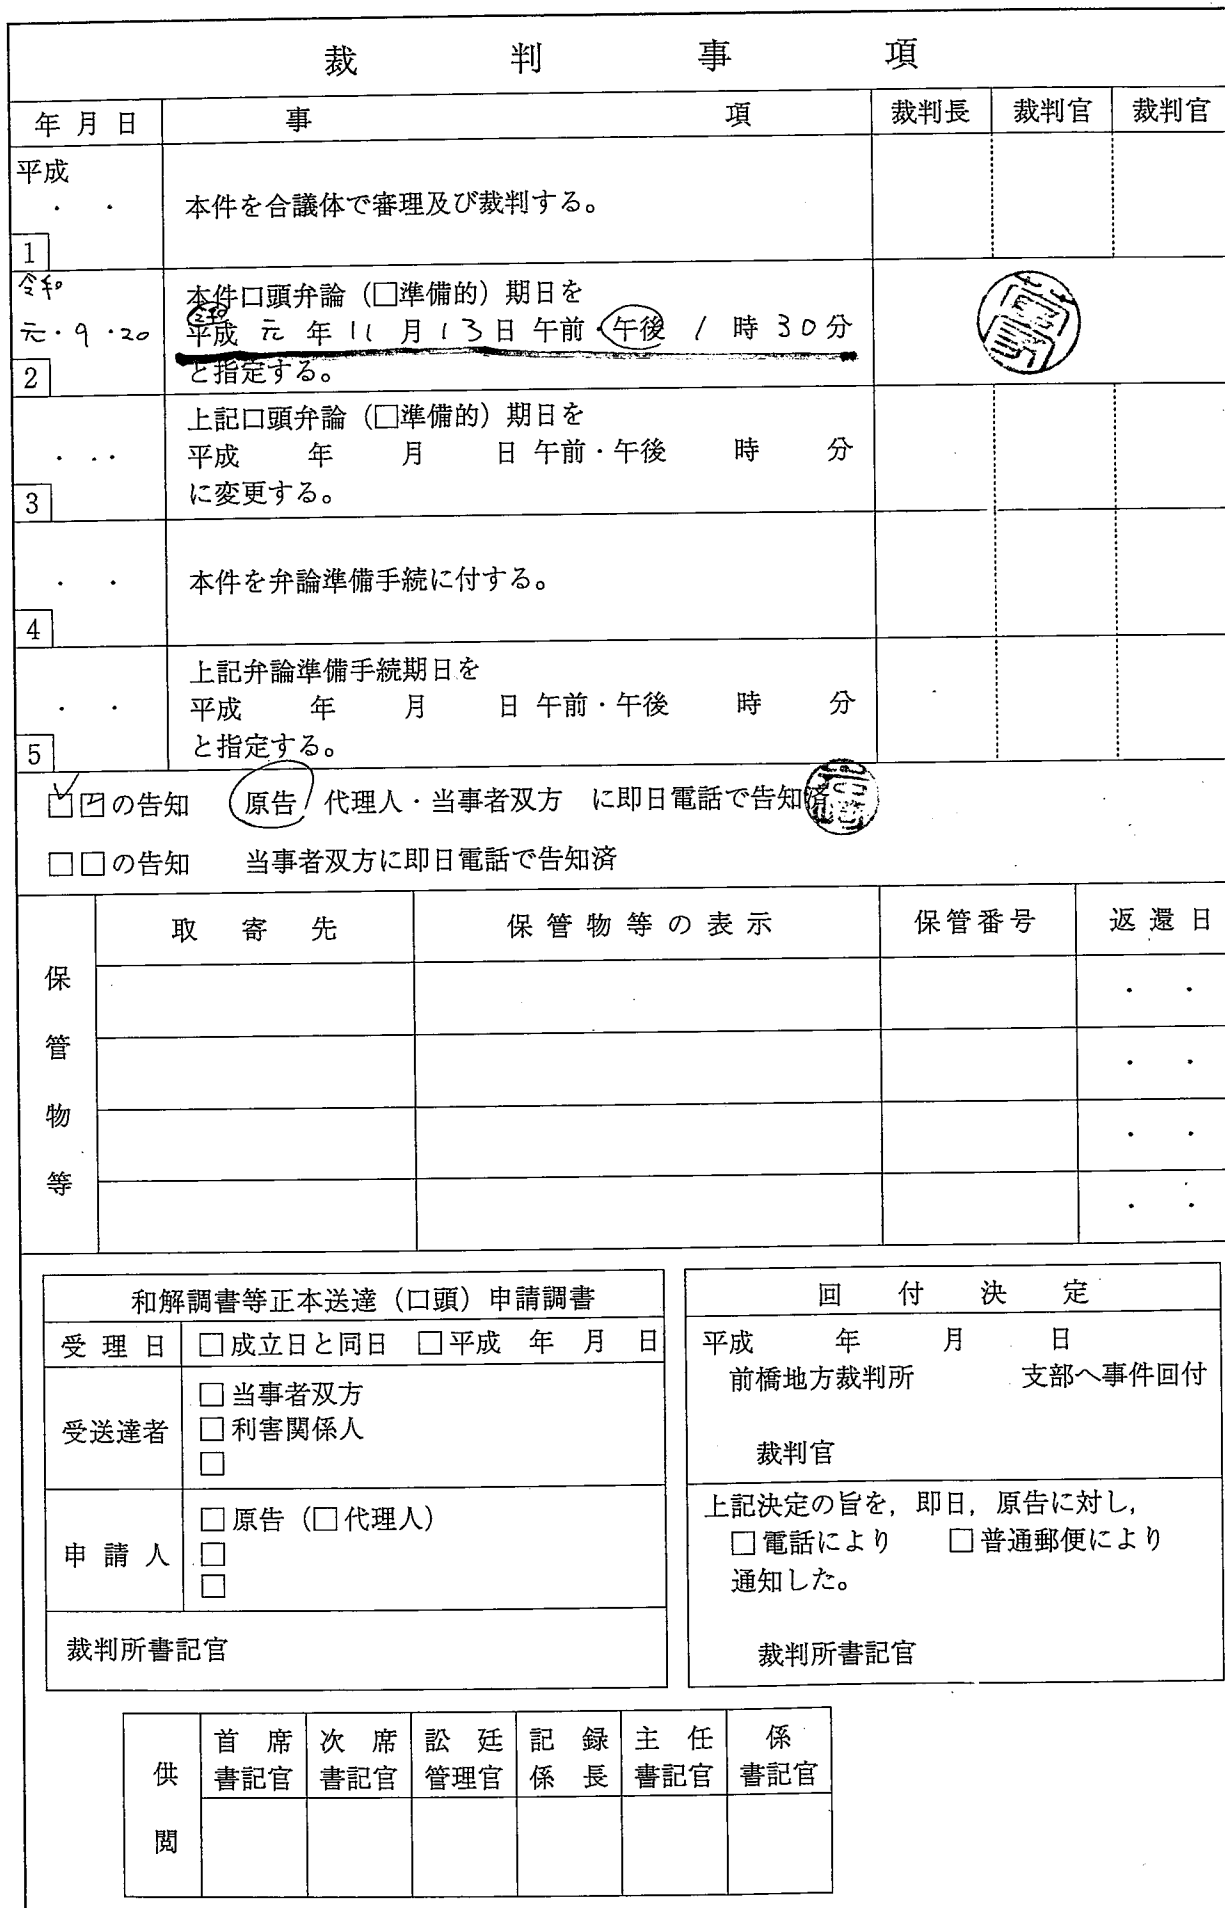 裁判事項
年月日 事項 裁判長 裁判官 裁判官
平成
・ ・ 本件を合議体で審理及び裁判する。
1
令和
元・9・20
本件口頭弁論（□準備的）期日を
令和
平成 元 年 11 月 13 日 午前・午後 1 時 30 分
と指定する。
2
上記口頭弁論（□準備的）期日を
・ ・・ 平成 年 月 日 午前・午後 時 分
に変更する。
3
・ ・ 本件を弁論準備手続に付する。
4
上記弁論準備手続期日を
・ ・ 平成 年 月 日 午前・午後 時 分
と指定する。
5
□□の告知 原告 代理人・当事者双方 に即日電話で告知済
□□の告知 当事者双方に即日電話で告知済
保管物等
取寄先 保管物等の表示 保管番号 返還日
・ ・
・ ・
・ ・
・ ・
和解調書等正本送達（口頭）申請調書
受理日 □成立日と同日 □平成 年 月 日
受送達者
□当事者双方
□利害関係人
□
申請人
□原告（□代理人）
□
□
裁判所書記官
回付決定
平成 年 月 日
前橋地方裁判所 支部へ事件回付
裁判官
上記決定の旨を，即日，原告に対し，
□電話により □普通郵便により
通知した。
裁判所書記官
供閲
首席書記官 次席書記官 訟廷管理官 記録係長 主任書記官 係書記官